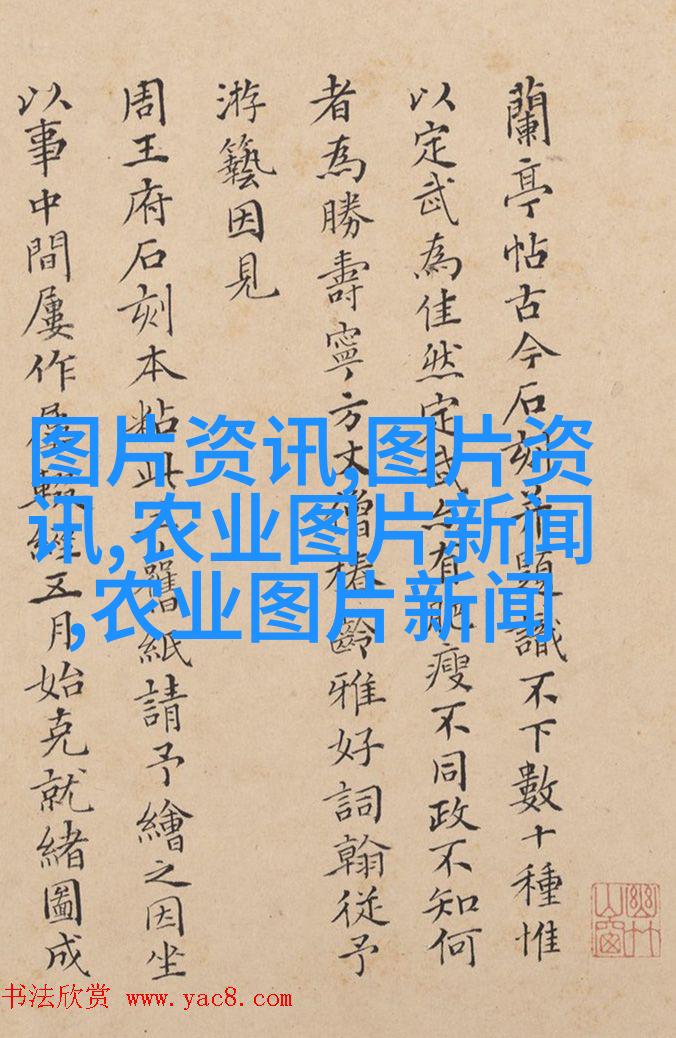 蘭亭帖古今石刻并題識不下數十種惟
以定武為佳然定武亦有肥瘦不同政不知何
者為勝壽寧方丈僧椿齡雅好詞翰從予
游藝因見
周王府石刻本粘此舊紙請予繪之因坐
以事中間屢作屢輟經五月始克就緒圖成
图片资讯,图片资
讯,农业图片新闻
,农业图片新闻
书法欣赏 www.yac8.com